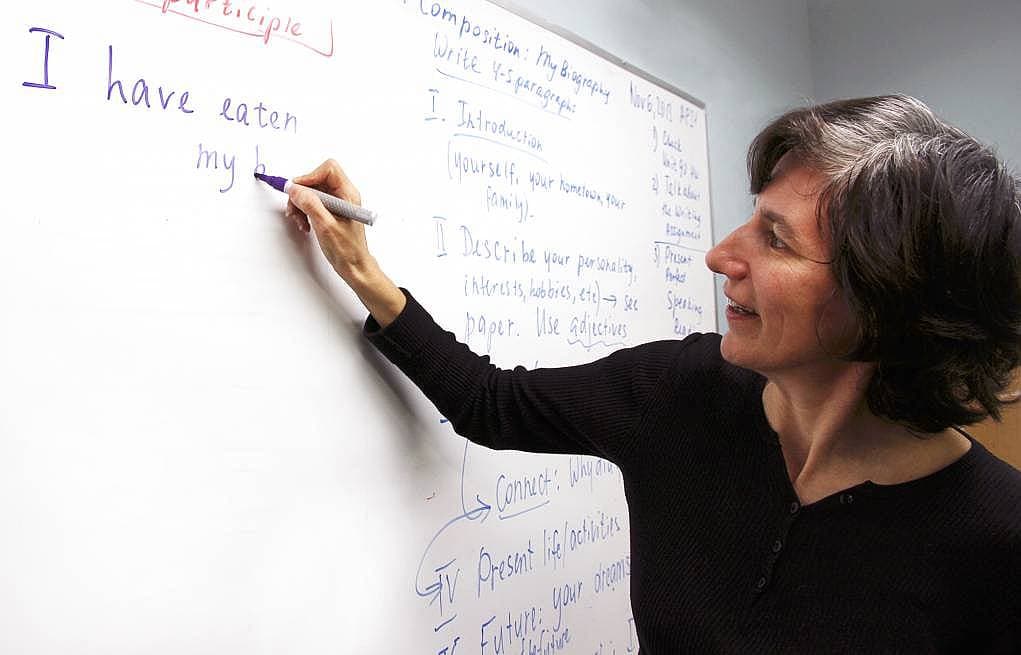 participle
I have eaten
my b
Composition: My Biography
Write 4-5 paragraphs
I. Introduction
(yourself, your hometown, your
family).
II Describe your personality,
interests, hobbies, etc) → see
paper. Use adjectives
Connect: Why did
IV Present life/activities
Future: your dreams
Nov 6,
1) Check
2) Talk about
the Writing
Assignment
3) Present
Perfect
Speaking